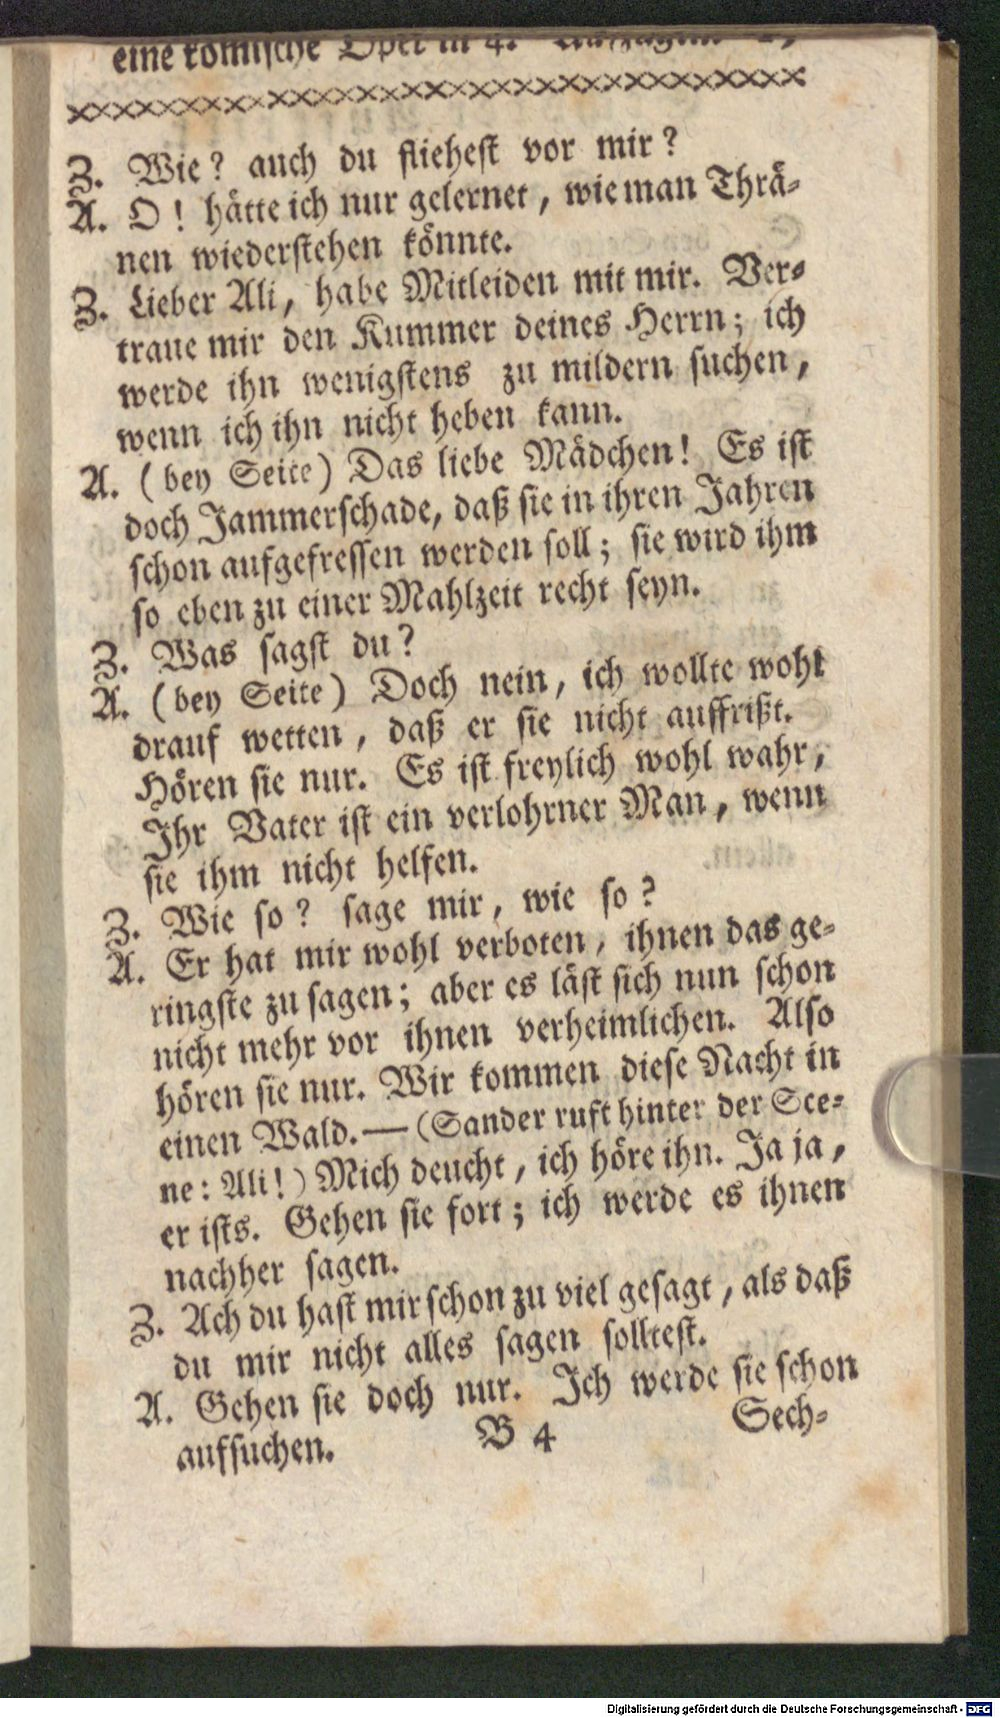 eine komische Oper in 4.
Z. Wie? auch du fliehest vor mir?
A. O! hätte ich nur gelernet, wie man Thrä-
nen wiederstehen könnte.
Z. Lieber Ali, habe Mitleiden mit mir. Ver-
traue mir den Kummer deines Herrn; ich
werde ihn wenigstens zu mildern suchen,
wenn ich ihn nicht heben kann.
A. (bey Seite) Das liebe Mädchen! Es ist
doch Jammerschade, daß sie in ihren Jahren
schon aufgefressen werden soll; sie wird ihm
so eben zu einer Mahlzeit recht seyn.
Z. Was sagst du?
A. (bey Seite) Doch nein, ich wollte wohl
drauf wetten, daß er sie nicht auffrißt.
Hören sie nur. Es ist freylich wohl wahr,
Ihr Vater ist ein verlohrner Man, wenn
sie ihm nicht helfen.
Z. Wie so? sage mir, wie so?
A. Er hat mir wohl verboten, ihnen das ge-
ringste zu sagen; aber es läst sich nun schon
nicht mehr vor ihnen verheimlichen. Also
hören sie nur. Wir kommen diese Nacht in
einen Wald.— (Sander ruft hinter der Sce-
ne: Ali!) Mich deucht, ich höre ihn. Ja ja,
er ists. Gehen sie fort; ich werde es ihnen
nachher sagen.
Z. Ach du hast mir schon zu viel gesagt, als daß
du mir nicht alles sagen solltest.
A. Gehen sie doch nur. Ich werde sie schon
aufsuchen.
B 4
Sech-
Digitalisierung gefördert durch die Deutsche Forschungsgemeinschaft - DFG